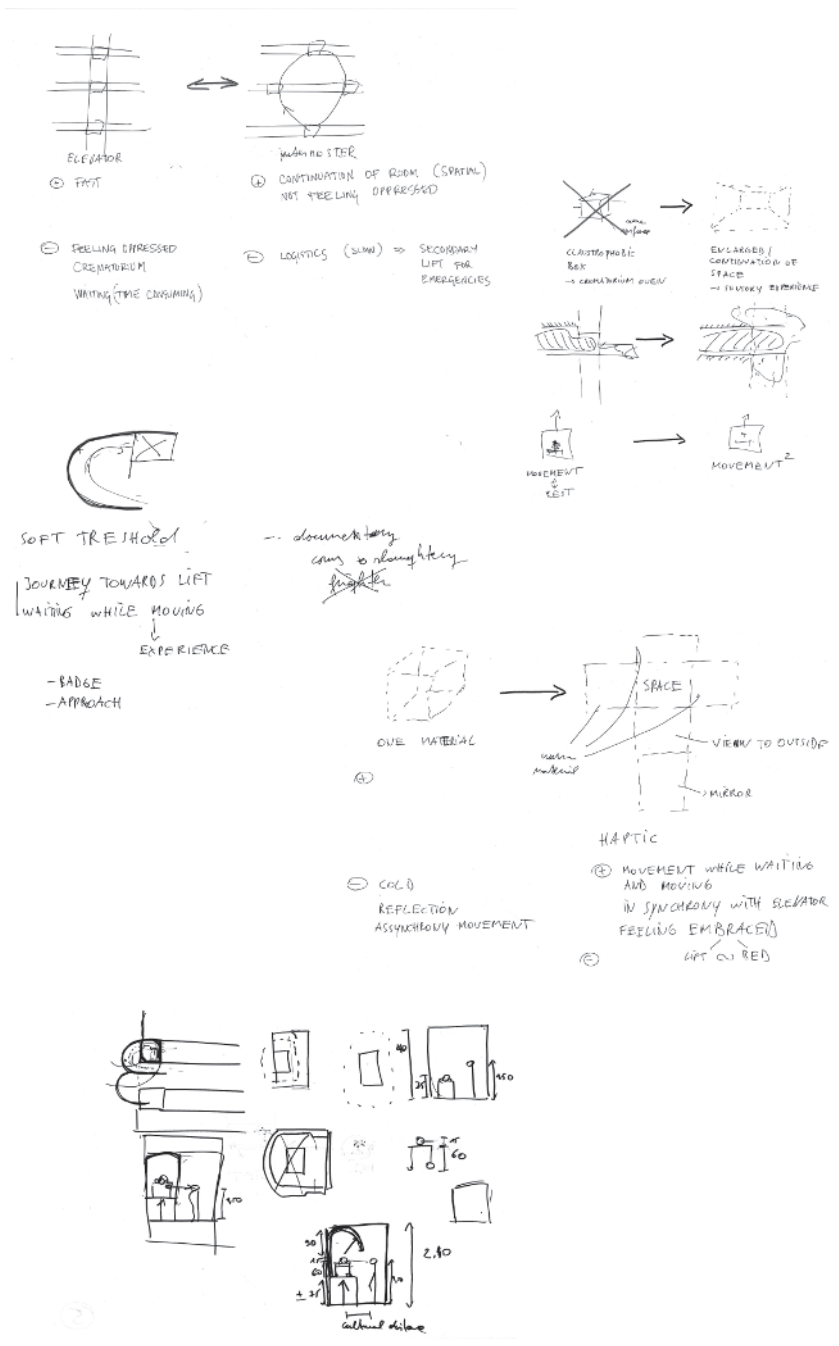 ELEVATOR
⊕ FAST
⊖ FEELING OPPRESSED
CREMATORIUM
WAITING (TIME CONSUMING)
paternoSTER
⊕ CONTINUATION OF ROOM (SPATIAL)
NOT FEELING OPPRESSED
⊖ LOGISTICS (SLOW) => SECONDARY
LIFT FOR
EMERGENCIES
CLAUSTROPHOBIC
BOX
→ CREMATORIUM OVEN
ENLARGED /
CONTINUATION OF
SPACE
→ SENSORY EXPERIENCE
MOVEMENT
REST
MOVEMENT²
SOFT TRESHOLD
JOURNEY TOWARDS LIFT
WAITING WHILE MOVING
EXPERIENCE
- BADGE
- APPROACH
documentary
cows to
ONE MATERIAL
⊕
⊖ COLD
REFLECTION
ASSYNCHRONY MOVEMENT
SPACE
material
VIEUW TO OUTSIDE
MIRROR
HAPTIC
⊕ MOVEMENT WHILE WAITING
AND MOVING
IN SYNCHRONY WITH ELEVATOR
FEELING EMBRACED
LIFT BED
⊖
60
90
60
2,40
cultural distance